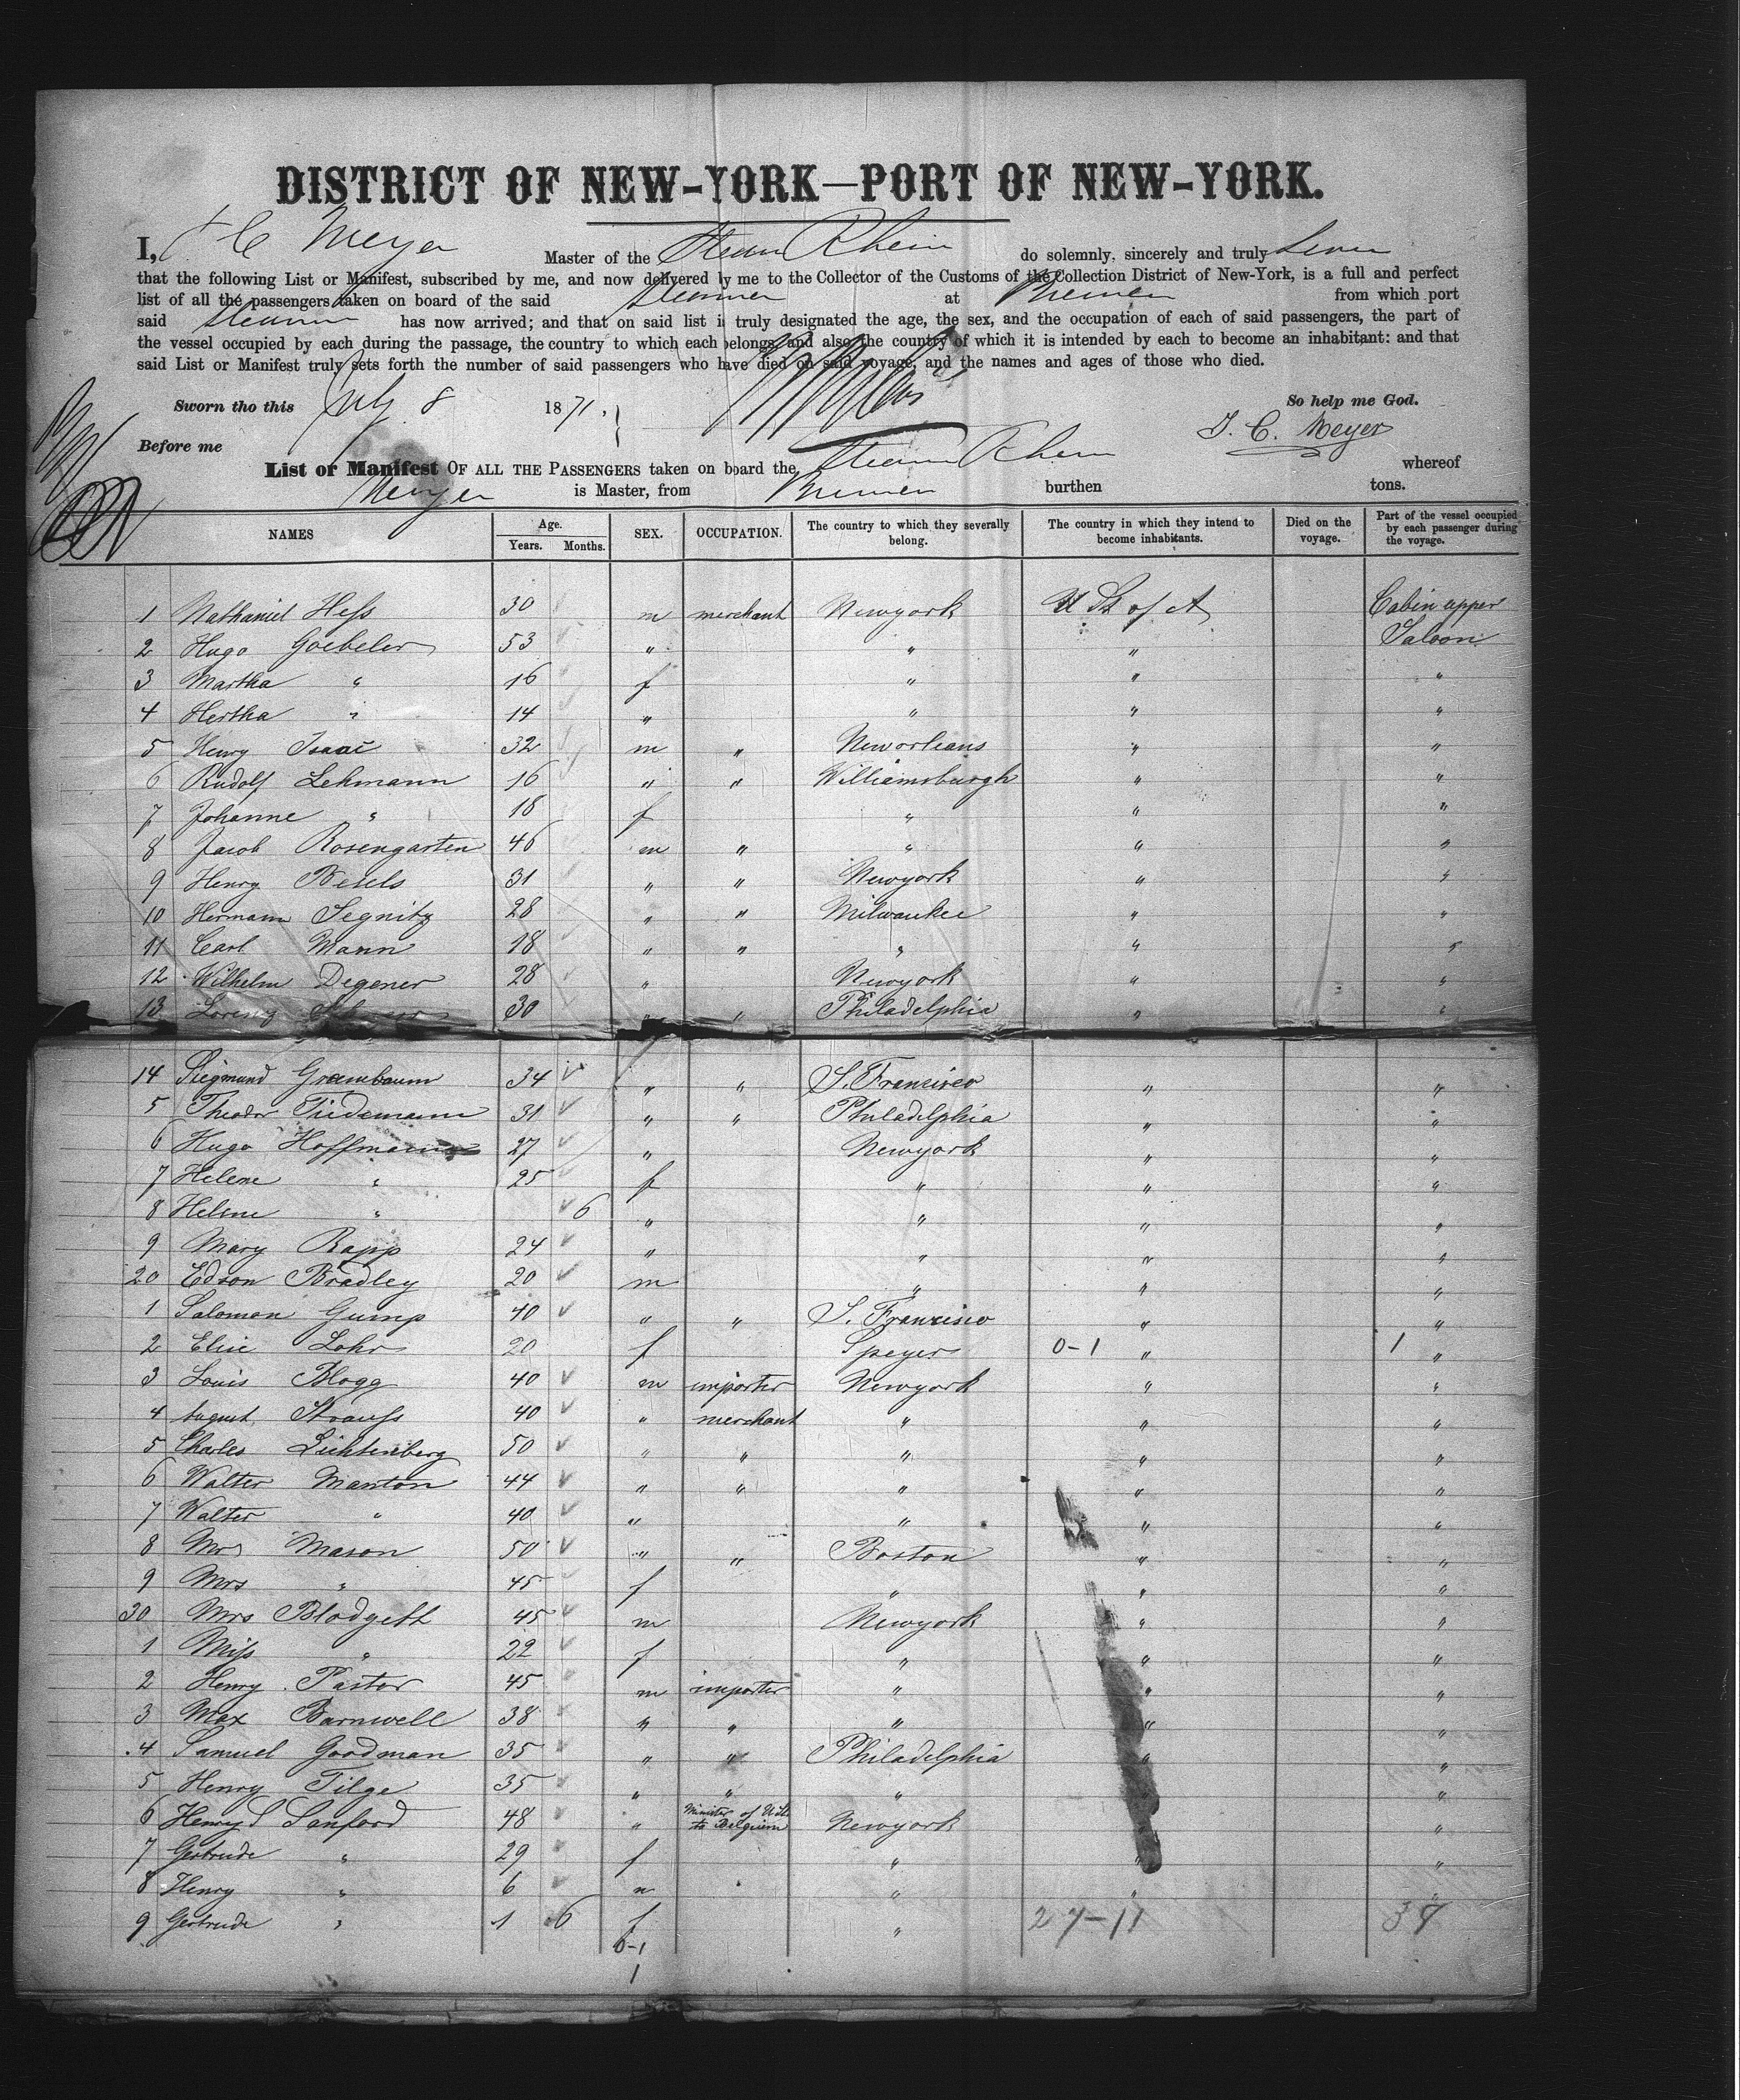 DISTRICT OF NEW-YORK—PORT OF NEW-YORK.
I, J. C. Meyer Master of the Steamer Rhein do solemnly, sincerely and truly swear
that the following List or Manifest, subscribed by me, and now delivered by me to the Collector of the Customs of the Collection District of New-York, is a full and perfect
list of all the passengers taken on board of the said Steamer at Bremen from which port
said Steamer has now arrived; and that on said list is truly designated the age, the sex, and the occupation of each of said passengers, the part of
the vessel occupied by each during the passage, the country to which each belongs, and also the country of which it is intended by each to become an inhabitant: and that
said List or Manifest truly sets forth the number of said passengers who have died on said voyage, and the names and ages of those who died.
Sworn tho this July 8 1871. So help me God.
Before me J. C. Meyer
List or Manifest OF ALL THE PASSENGERS taken on board the Steamer Rhein whereof
Meyer is Master, from Bremen burthen tons.
NAMES Age. Years. Months. SEX. OCCUPATION. The country to which they severally belong. The country in which they intend to become inhabitants. Died on the voyage. Part of the vessel occupied by each passenger during the voyage.
1 Nathaniel Hess 30 m merchant Newyork U St of A Cabin upper
2 Hugo Goebeler 53 " " " Saloon
3 Martha " 16 f " " "
4 Hertha " 14 " " " "
5 Henry Isaac 32 m " Neworleans " "
6 Rudolf Lehmann 16 " " Williamsburgh " "
7 Johanne " 18 f " " "
8 Jacob Rosengarten 46 m " " " "
9 Henry Besels 31 " " Newyork " "
10 Hermann Segnitz 28 " " Milwaukee " "
11 Carl Mann 18 " " " " "
12 Wilhelm Degener 28 " Newyork " "
13 Lorenz 30 " " Philadelphia " "
14 Siegmund Greenbaum 34 " " S. Francisco " "
5 Theodor Tiedemann 31 " " Philadelphia " "
6 Hugo Hoffmann 27 " Newyork " "
7 Helene " 25 f " " "
8 Helene " 6 " " " "
9 Mary Rapp 24 " " " "
20 Edson Bradley 20 m " " "
1 Salomon Gump 40 " " S. Francisco " "
2 Elise Lohr 20 f Speyer 0-1 " 1 "
3 Louis Blogg 40 m importer Newyork " "
4 August Strauss 40 " merchant " " "
5 Charles Lichtenberg 50 " " " " "
6 Walter Manton 44 " " " " "
7 Walter " 40 " " " "
8 Mr Mason 50 " " Boston " "
9 Mrs " 45 f " " "
30 Mrs Blodgett 45 m Newyork " "
1 Miss " 22 f " " "
2 Henry Pastor 45 m importer " " "
3 Max Barnwell 38 " " " " "
4 Samuel Goodman 35 " " Philadelphia " "
5 Henry Tilge 35 " " " "
6 Henry S Sanford 48 " Minister of U St to Belgium Newyork "
7 Gertrude " 29 f " " "
8 Henry " 6 m " " "
9 Gertrude " 1 6 f " 27-11 39
0-1
1